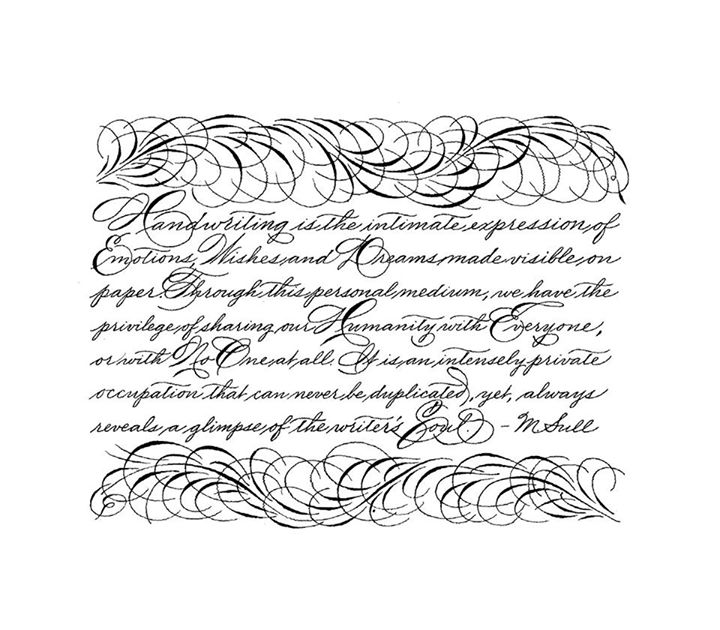 Handwriting is the intimate expression of
Emotions, Wishes and Dreams made visible on
paper. Through this personal medium, we have the
privilege of sharing our Humanity with Everyone,
or with No One at all. It is an intensely private
occupation that can never be duplicated, yet, always
reveals a glimpse of the writer's Soul. - M Sull